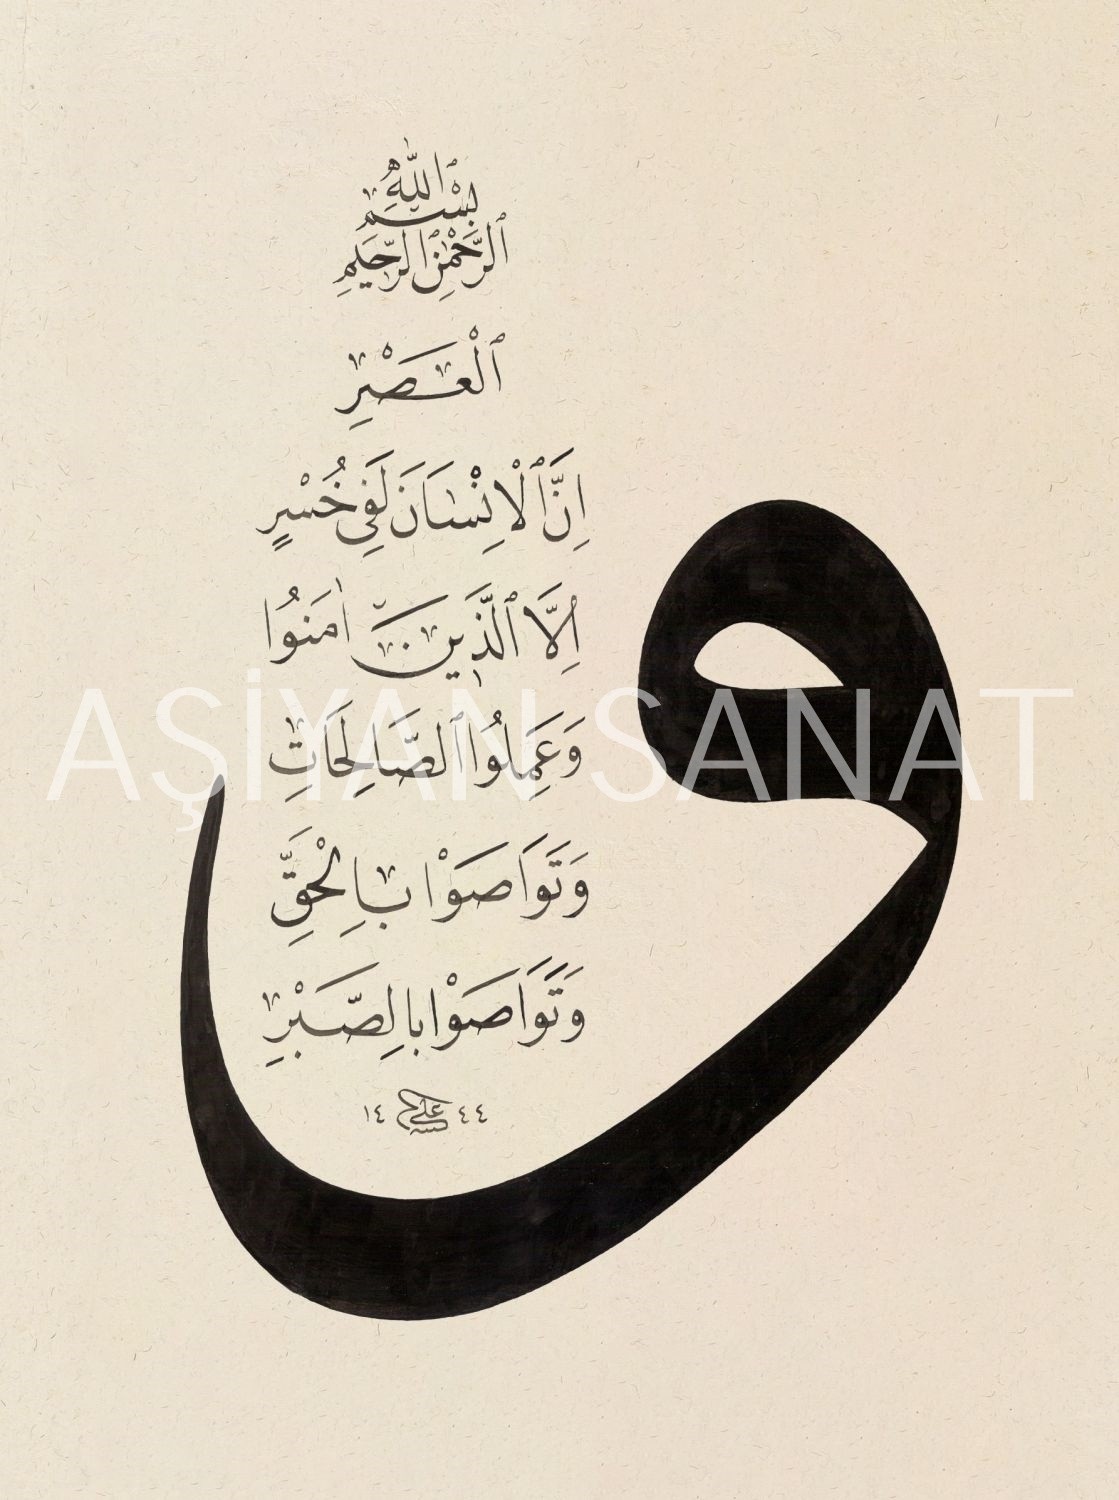 بِسْمِ اللّٰهِ
الرَّحْمٰنِ الرَّحِيمِ
و
الْعَصْرِ
اِنَّ الْاِنْسَانَ لَفِى خُسْرٍ
اِلَّا الَّذِينَ اٰمَنُوا
وَعَمِلُوا الصَّالِحَاتِ
وَتَوَاصَوْا بِالْحَقِّ
وَتَوَاصَوْا بِالصَّبْرِ
١٤٤٤
AŞİYAN SANAT